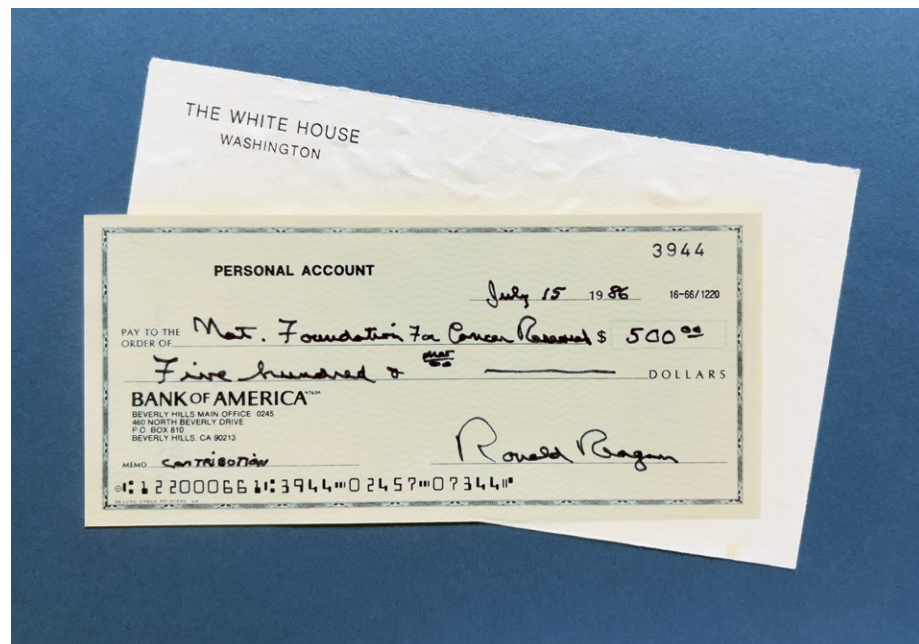 THE WHITE HOUSE
WASHINGTON
3944
PERSONAL ACCOUNT
July 15 1986 16-66/1220
PAY TO THE
ORDER OF Nat. Foundation For Cancer Research $ 500 00
Five hundred & no/00 DOLLARS
BANK OF AMERICA
BEVERLY HILLS MAIN OFFICE 0245
460 NORTH BEVERLY DRIVE
P.O. BOX 810
BEVERLY HILLS, CA 90213
MEMO CONTRIBUTION Ronald Reagan
⑆122000661⑆3944⑈02457⑈07344⑈
DELUXE CHECK PRINTERS